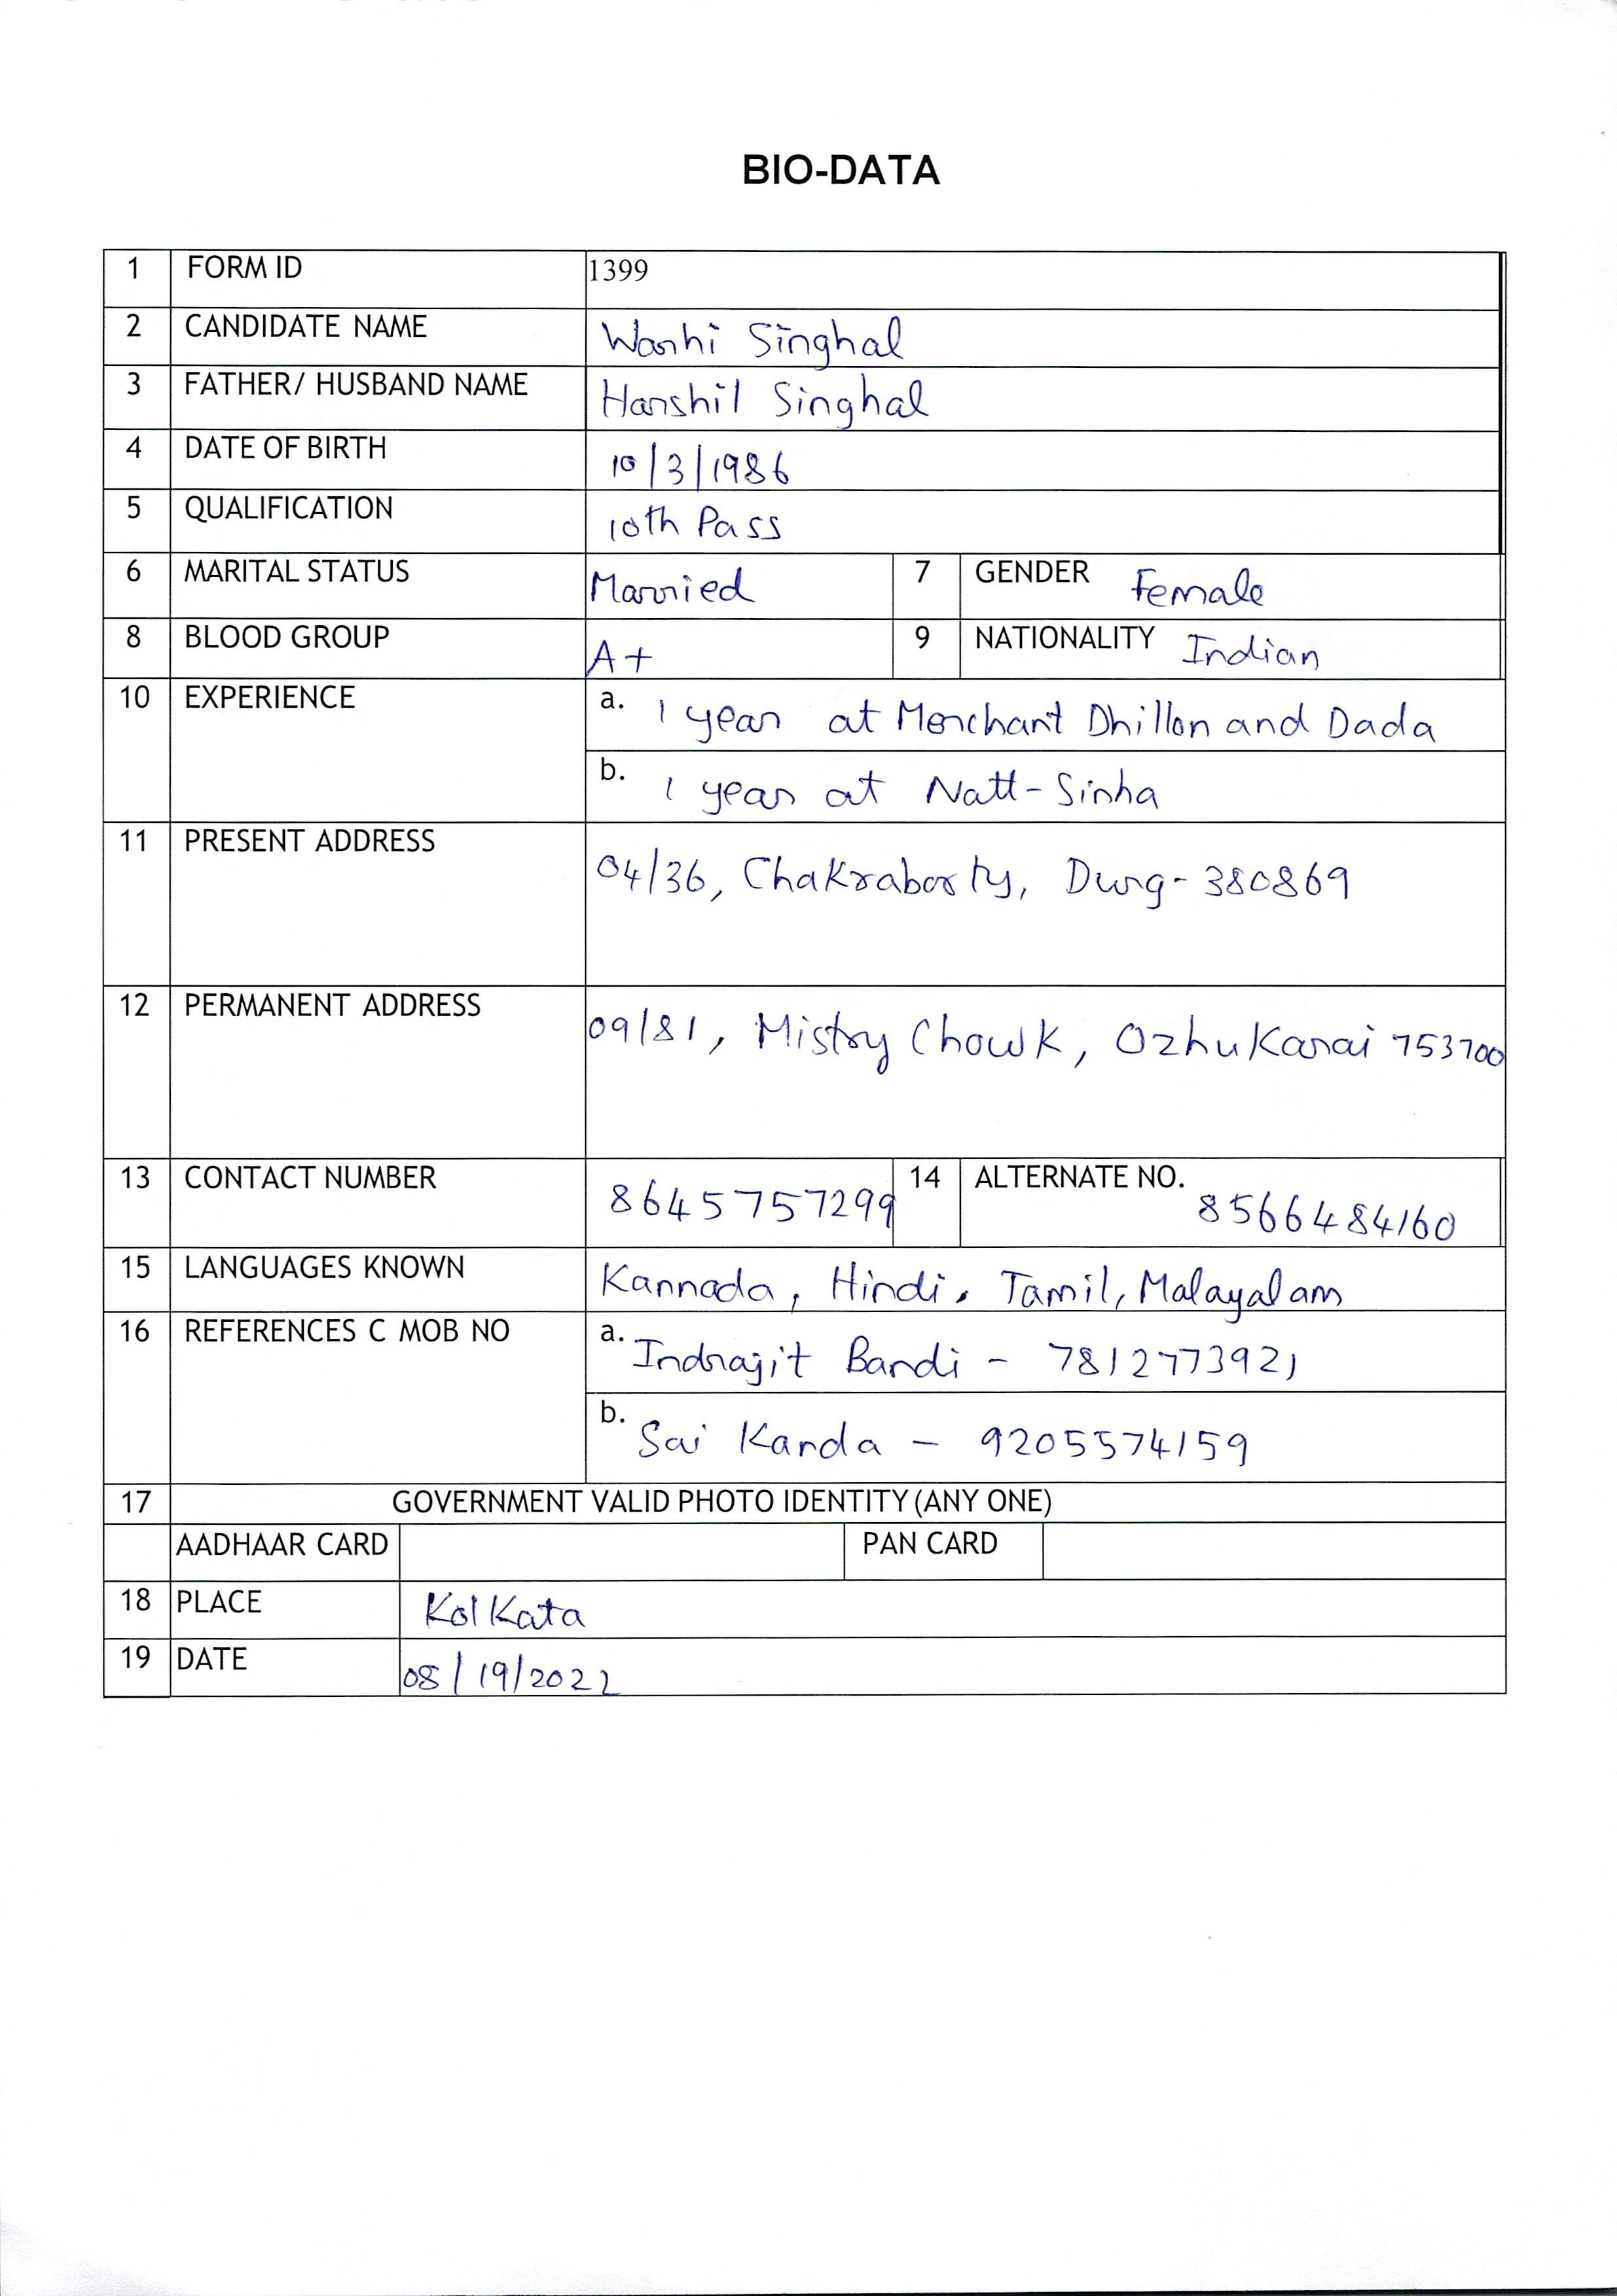 BIO-DATA
1 FORM ID 1399
2 CANDIDATE NAME Warhi Singhal
3 FATHER/ HUSBAND NAME Harshil Singhal
4 DATE OF BIRTH 10/3/1986
5 QUALIFICATION 10th Pass
6 MARITAL STATUS Married 7 GENDER Female
8 BLOOD GROUP A+ 9 NATIONALITY Indian
10 EXPERIENCE a. 1 year at Merchant Dhillon and Dada
b. 1 year at Natt-Sinha
11 PRESENT ADDRESS 04/36, Chakraborty, Durg-380869
12 PERMANENT ADDRESS 09/81, Mistry Chowk, Ozhukarai 753700
13 CONTACT NUMBER 8645757299 14 ALTERNATE NO. 8566484160
15 LANGUAGES KNOWN Kannada, Hindi, Tamil, Malayalam
16 REFERENCES C MOB NO a. Indrajit Bandi - 7812773921
b. Sai Kanda - 9205574159
17 GOVERNMENT VALID PHOTO IDENTITY (ANY ONE)
AADHAAR CARD PAN CARD
18 PLACE Kolkata
19 DATE 08/19/2022